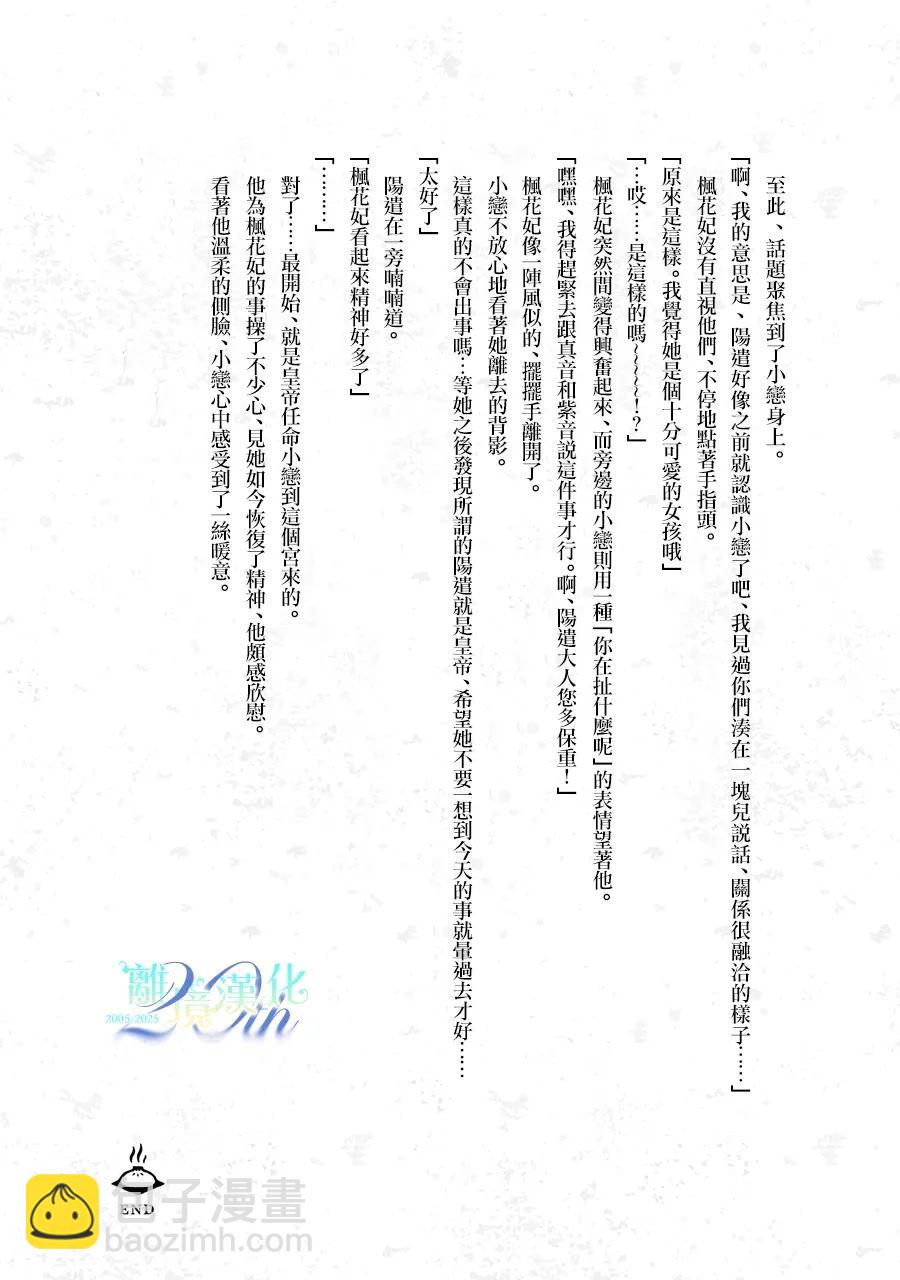 至此、話題聚焦到了小戀身上。
「啊、我的意思是、陽遣好像之前就認識小戀了吧、我見過你們湊在一塊兒説話、關係很融洽的樣子……」
楓花妃沒有直視他們、不停地點著手指頭。
「原來是這樣。我覺得她是個十分可愛的女孩哦」
「…哎……是這樣的嗎~~~~!?」
楓花妃突然間變得興奮起來、而旁邊的小戀則用一種「你在扯什麼呢」的表情望著他。
「嘿嘿、我得趕緊去跟真音和紫音説這件事才行。啊、陽遣大人您多保重！」
楓花妃像一陣風似的、擺擺手離開了。
小戀不放心地看著她離去的背影。
這樣真的不會出事嗎…等她之後發現所謂的陽遣就是皇帝、希望她不要一想到今天的事就暈過去才好……
「太好了」
陽遣在一旁喃喃道。
「楓花妃看起來精神好多了」
「………」
對了……最開始、就是皇帝任命小戀到這個宮來的。
他為楓花妃的事操了不少心、見她如今恢復了精神、他頗感欣慰。
看著他溫柔的側臉、小戀心中感受到了一絲暖意。
離境漢化
20th
2005-2025
END
包子漫畫
baozimh.com